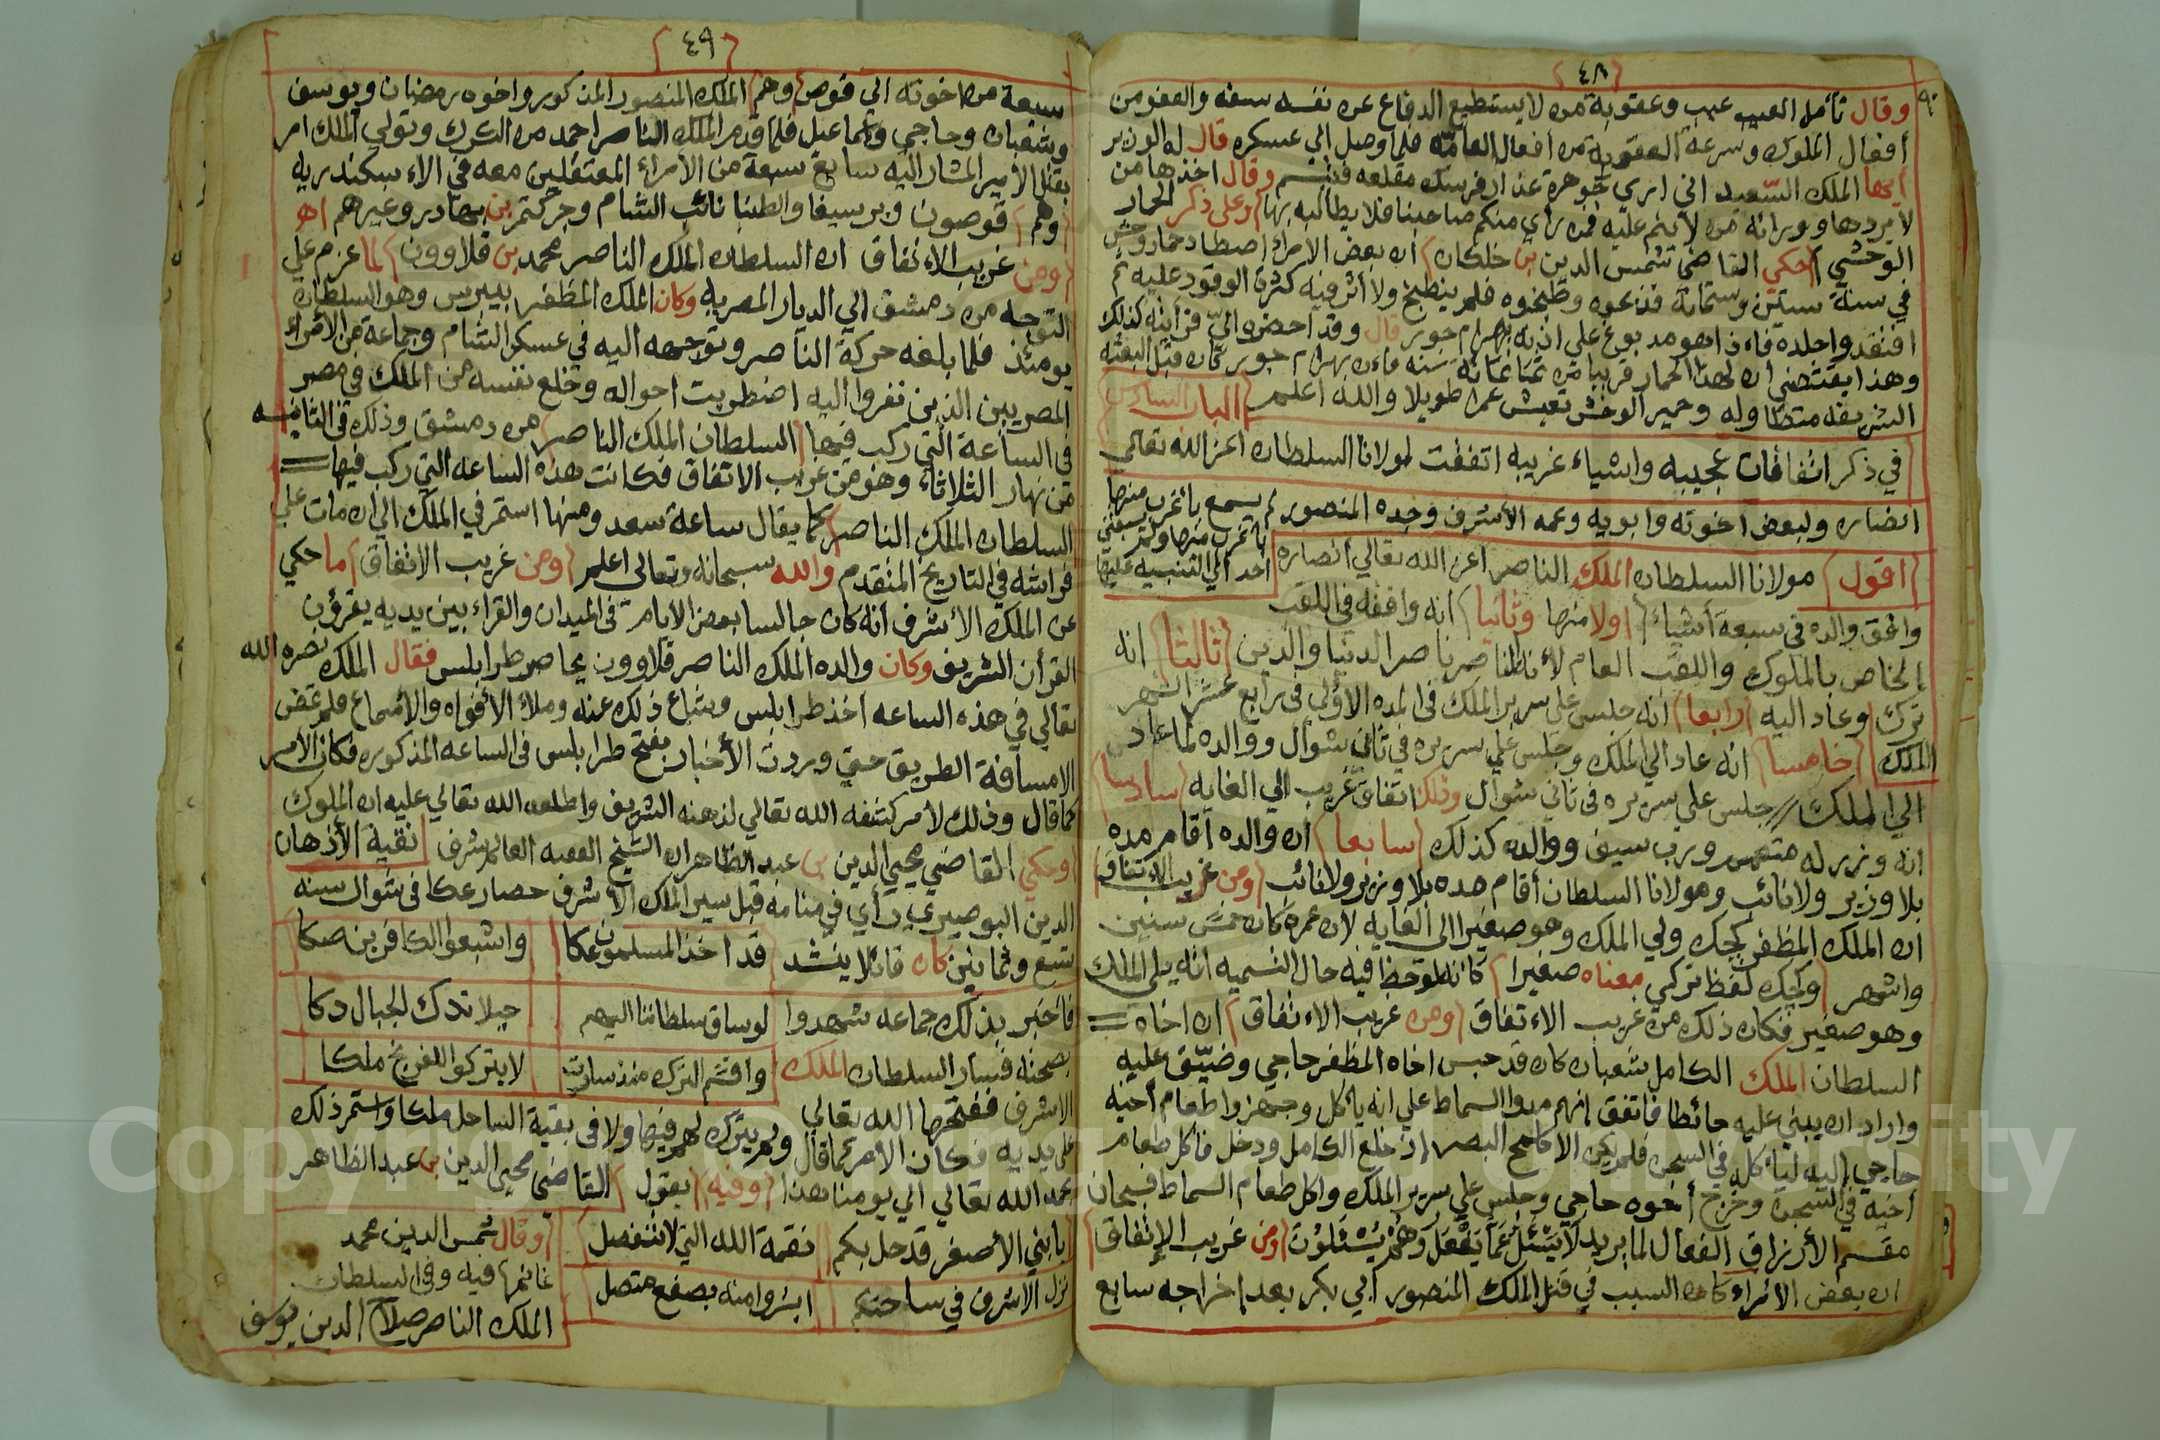 ٤٨
وقال تأمل العيب عيب وعقوبة من لا يستطيع الدفاع عن نفسه سفه والعفو من
أفعال الملوك وسرعة العقوبة من أفعال العامة فلما وصل إلى عسكره قال له الوزير
أيها الملك السعيد اني ارى جوهرة عذار فرسك مقلعه فتبسم وقال اخذها من
لا يردها وراه من لا ينم عليه فمن رأى منكم صاحبنا فلا يطالبه بها وعلى ذكر الحمار
الوحشي حكى القاضي شمس الدين بن خلكان ان بعض الامراء اصطاد حمار وحش
في سنة ستين وستمائة فذبحوه وطبخوه فلم ينطبخ ولا أثر فيه كثرة الوقود عليه ثم
افتقدوا جلده فاءذا هو مدبوغ على اذنه بهرام جور قال وقد احضروه الي فرأيته كذلك
وهذا يقتضي ان لهذا الحمار قريبا من ثمانمائة سنه فاءن بهرام جور كان قبل البعثه
الشريفه متطاوله وحمير الوحش تعيش عمرا طويلا والله اعلم الباب السادس
في ذكر اتفاقات عجيبه واشياء غريبه اتفقت لمولانا السلطان اعز الله تعالى
انصاره ولبعض اخوته وابويه وعمه الأشرف وجده المنصور لم يسمع باغرب منها
اقول مولانا السلطان الملك الناصر اعز الله تعالى انصاره
احد الى التنبيه عليها
وافق والده في سبعة أشياء اولا منها وثانيا أنه وافقه في اللقب
الخاص بالملوك واللقب العام لأن لقبنا ناصر الدنيا والدين ثالثا انه
ترك وعاد اليه رابعا أنه جلس على سرير الملك في المده الأولى في رابع عشر الشهر
الملك خامسا انه عاد الى الملك وجلس على سريره في ثاني شوال ووالده لما عاد
الى الملك جلس على سريره في ثاني شوال وذلك اتفاق غريب الى الغايه سادسا
انه وزر له متعمم ورب سيف ووالده كذلك سابعا ان والده أقام مده
بلا وزير ولا نائب ومولانا السلطان أقام مده بلا وزير ولا نائب ومن غريب الاءتفاق
ان الملك المظفر كجك ولي الملك وهو صغير الى الغايه لان عمره كان خمس سنين
واشهر وكجك لفظ تركي معناه صغير كانه لوحظ فيه حال التسميه انه يلي الملك
وهو صغير فكان ذلك من غريب الاءتفاق ومن غريب الاءتفاق ان اخاه
السلطان الملك الكامل شعبان كان قد حبس اخاه المظفر حاجي وضيق عليه
واراد ان يبني عليه حائطا فاتفق انهم مدوا السماط على انه يأكل وجهزوا طعام أخيه
حاجي إليه ليأكله في السجن فلم يكن الا كلمح البصر إذ خلع الكامل ودخل فاكل طعام
أخيه في السجن وخرج أخوه حاجي وجلس على سرير الملك واكل طعام السماط فسبحان
مقسم الأرزاق الفعال لما يريد لا يسئل عما يفعل وهم يسئلون ومن غريب الإتفاق
ان بعض الأمراء كان السبب في قتل الملك المنصور أبي بكر بعد إخراجه سابع
٤٩
سبعة من اخوته الى قوص وهم الملك المنصور المذكور واخوه رمضان ويوسف
وشعبان وحاجي واسماعيل فلما قدم الملك الناصر احمد من الكرك وتولى الملك امر
بقتل الأمير المشار اليه سابع سبعة من الأمراء المعتقلين معه في الاءسكندريه
وهم قوصون وبرسبغا والطنبغا نائب الشام وجركتمر بن بهادر وغيرهم اهـ
ومن غريب الاءتفاق ان السلطان الملك الناصر محمد بن قلاوون لما عزم على
التوجه من دمشق الى الديار المصريه وكان الملك المظفر بيبرس وهو السلطان
يومئذ فلما بلغه حركة الناصر وتوجهه اليه في عسكر الشام وجماعة من الأمراء
المصريين الذين نفروا اليه اضطربت احواله وخلع نفسه من الملك في مصر
في الساعة التي ركب فيها السلطان الملك الناصر من دمشق وذلك في الثانيه
من نهار الثلاثاء وهو من غريب الاتفاق فكانت هذه الساعه التي ركب فيها
السلطان الملك الناصر كما يقال ساعة سعد ومنها استمر في الملك الى ان مات على
فراشه في التاريخ المتقدم والله سبحانه وتعالى اعلم ومن غريب الاتفاق ما حكي
عن الملك الأشرف أنه كان جالسا بعض الأيام في الميدان والقراء بين يديه يقرؤن
القرأن الشريف وكان والده الملك الناصر قلاوون يحاصر طرابلس فقال الملك نصره الله
تعالى في هذه الساعه أخذ طرابلس وشاع ذلك عنه وملاء الأفواه والأسماع فلم تمض
الا مسافة الطريق حتى وردت الأخبار بفتح طرابلس في الساعه المذكوره فكان الأمر
كما قال وذلك لأمر كشفه الله تعالى لذهنه الشريف واطلعه الله تعالى عليه ان الملوك
وحكي القاضي محيي الدين بن عبد الظاهر ان الشيخ الفقيه العالم شرف نقية الأذهان
الدين البوصيري رأي في منامه قبل سير الملك الأشرف حصار عكا في شوال سنه
تسع وثمانين كان قائلا ينشد قد اخذ المسلمون عكا واشبعوا الكافرين صكا
فأخبر بذلك جماعه شهدوا لوساق سلطاننا اليهم جبلا تدك الجبال دكا
بصحته فسار السلطان الملك واقسم الترك منذ سارت لا يتركوا للفرنج ملكا
الاشرف ففتحها الله تعالى ولم يترك لهم فيها ولا في بقية الساحل ملكا واستمر ذلك
على يديه فكان الأمر كما قال
بحمد الله تعالى الى يومنا هذا وفيه يقول القاضي محيي الدين بن عبد الظاهر
يا بني الأصفر قد حل بكم نقمة الله التي لا تنفصل وقال شمس الدين محمد
نزل الاشرف في ساحتكم ابشروا منه بصفع متصل غانم فيه وفي السلطان
الملك الناصر صلاح الدين يوسف
Copyright © King Saud University